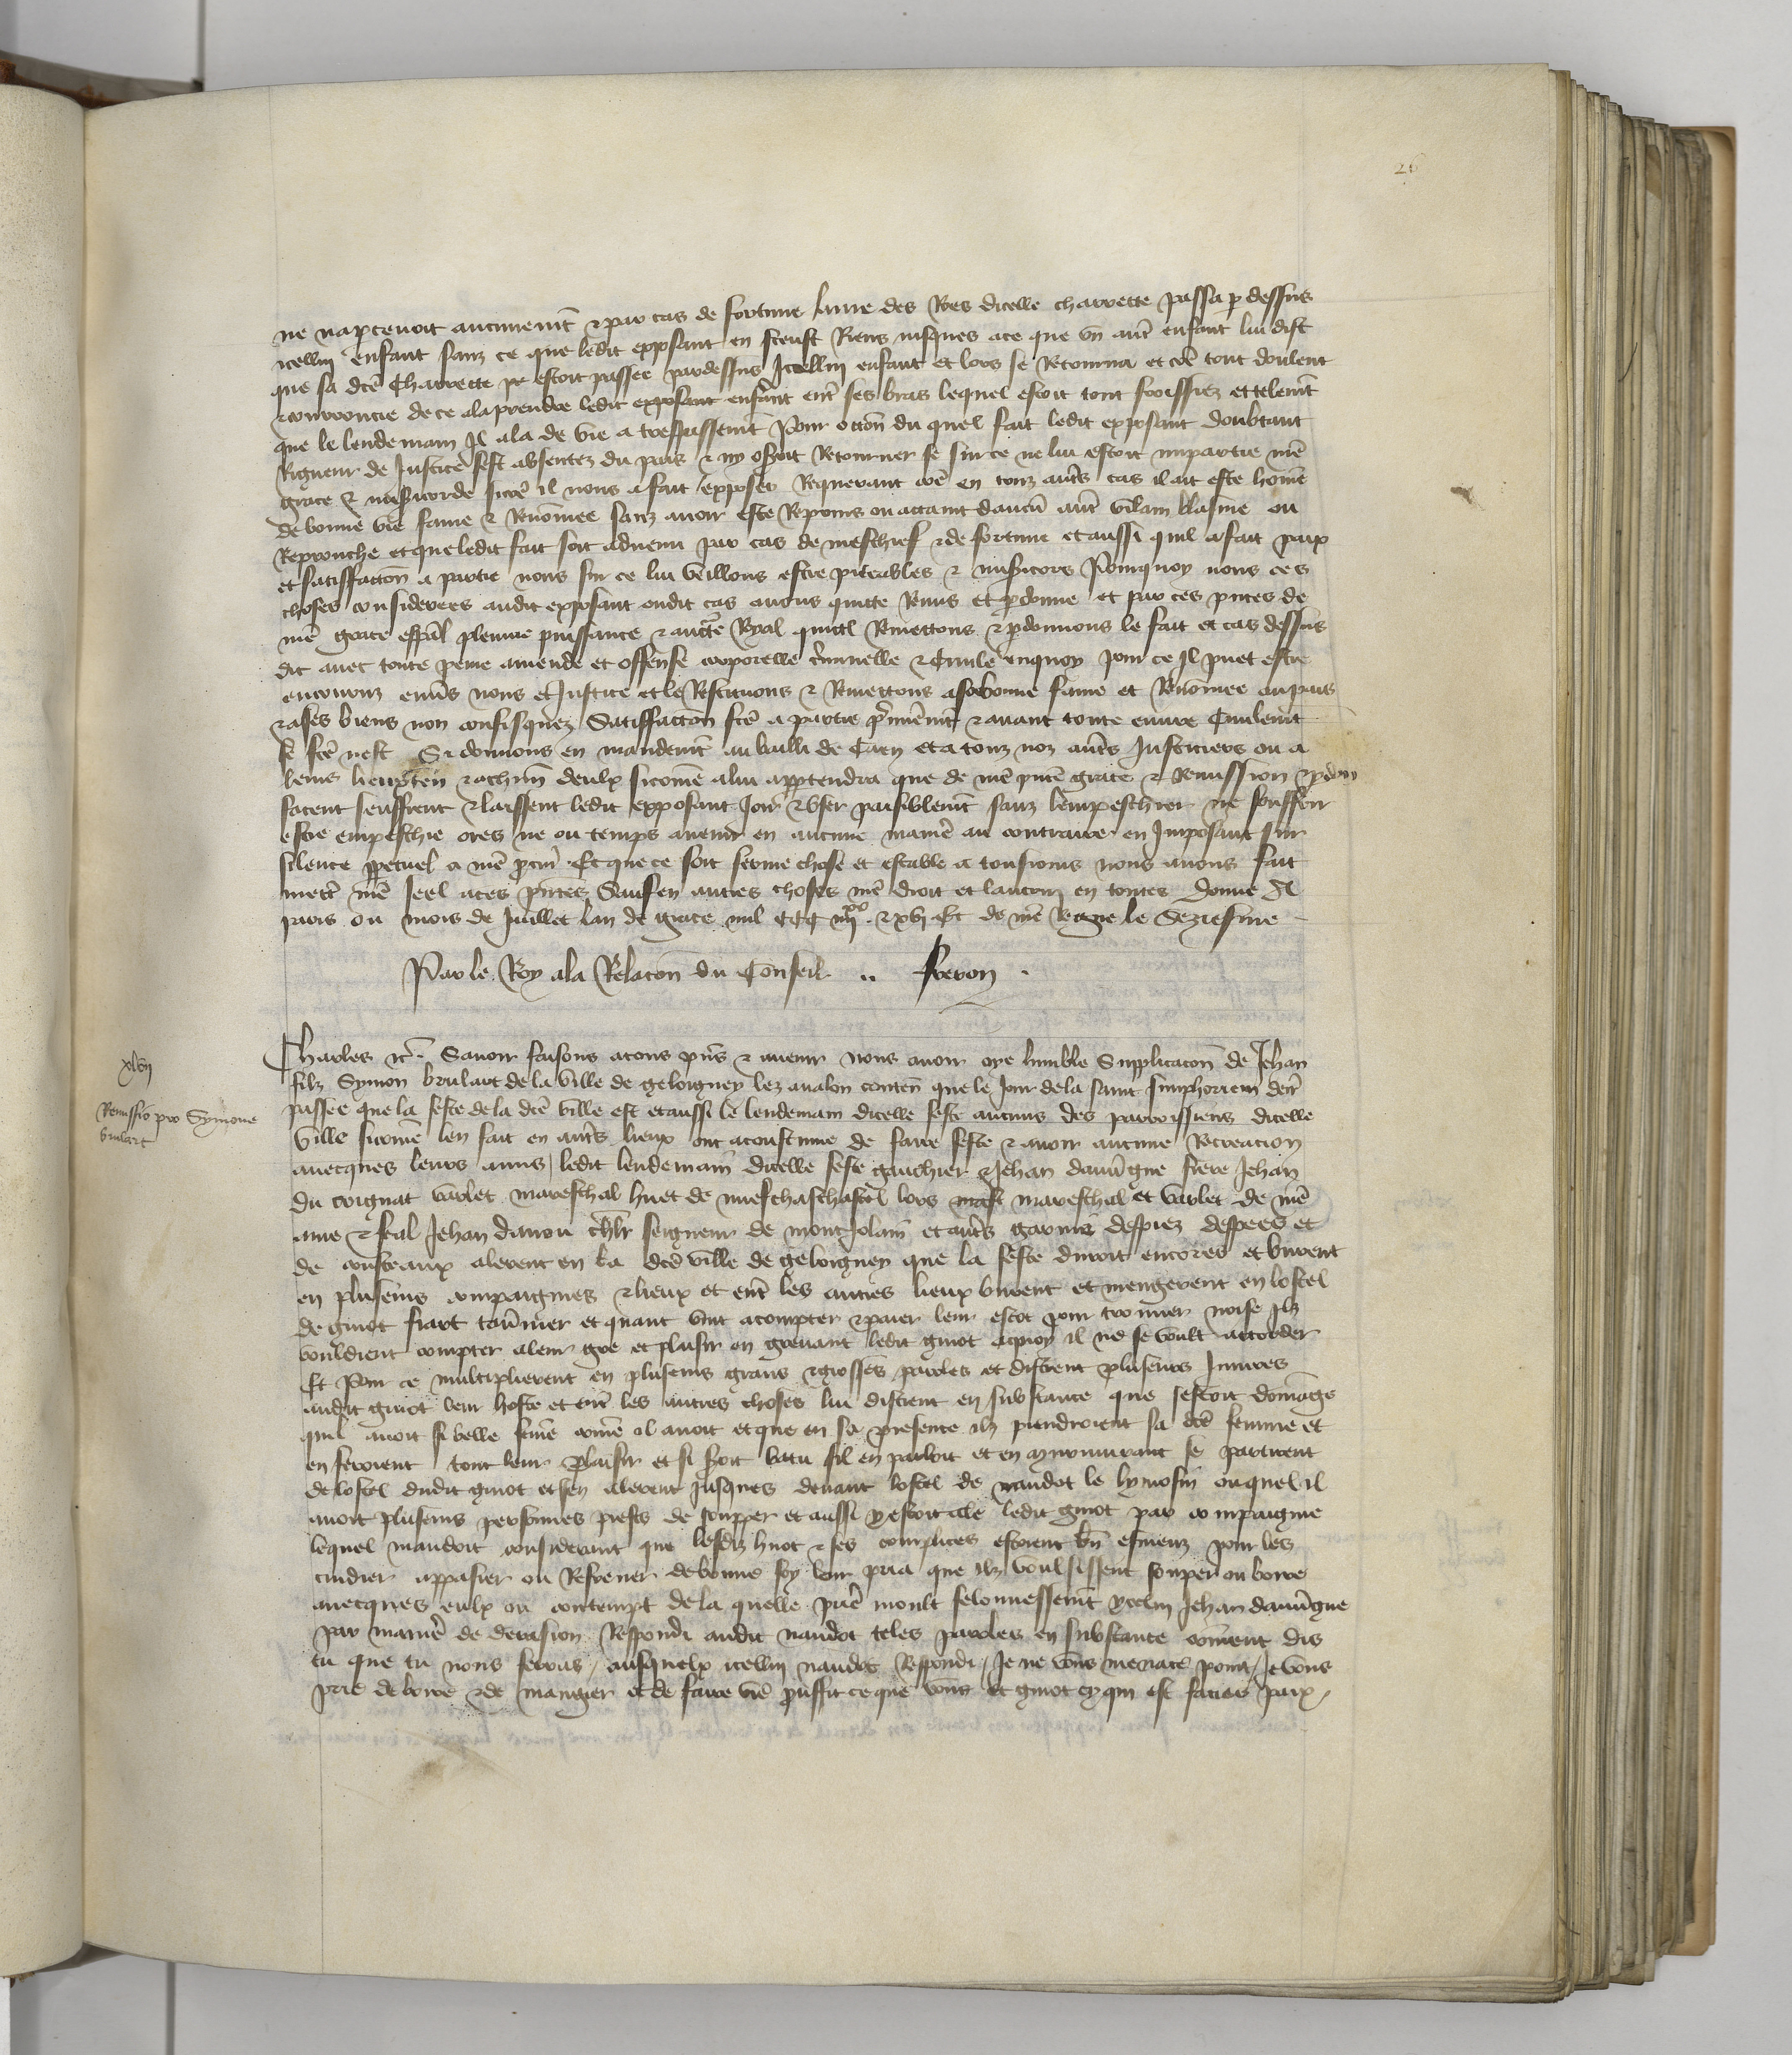 26
ne napcevoit aucunemt & par cas de fortune lune des Roes dicelle charrette passa p dessus
icellui enfant sanz ce que ledit exposant en sceust Riens jusques ace que vn autre enfant lui dist
que sa dce Charrette pr estoit passee pardessus Icellui enfant et lors se Retourna et coe tout doulent
& courroucie de ce ala prendre ledit exposant enfant entre ses bras lequel estoit tout froissiez et telemt
que le lendemain Il ala de vie a trespassemt Pour occon du quel fait ledit exposant doubtant
Rigueur de Justice sest absentez du pais & ny oseroit Retourner se sur ce ne lui estoit impartie nre
grace & misericorde sicoe il nous a fait exposer Requerant coe en touz autres cas il ait este homme
de bonne vie fame & Renommee sanz avoir este Reprins ou attaint daucun autre vilain blasme ou
Reprouche et que ledit fait soit advenu par cas de meschief & de fortune et aussi quil a fait paix
et satisfaccon a partie nous sur ce lui veillons estre piteables & misicors Pourquoy nous ces
choses considerees audit exposant oudit cas avons quitte Remis et pdonne et par ces pntes de
nre grace espal plenne puissance & aucte Royal quittl Remettons & pdonnons le fait et cas dessus
dit avec toute peine amende et offense corporelle criminelle & Civile enquoy pour ce Il puet estre
encouruz envers nous et Justice et le Restituons & Remettons a sa bonne fame et Renommee au pais
& a ses biens non confisquez Satisfaccon fce a partie premieremt & avant toute euvre Civilemt
se fce nest Si donnons en mandemt au bailli de Caen et a touz noz autres Justiciers ou a
leurs lieuxten & achun deulx sicomme a lui apptendra que de nre pnte grace & Remission & pdon
facent seuffrent & laissent ledit exposant Joir & vser paisiblemt sanz lempeschier ne souffrir
estre empeschie ores ne ou temps avenir en aucune maniere au contraire en Imposant sur
silence ppetuel a nre pcur Et que ce soit ferme chose et estable a tousiours nous avons fait
mettre nre seel a ces pntes Sauf en autres choses nre droit et lautrui en toutes Donne A
paris ou mois de Juillet lan de grace mil CCC iiijxx & xvj Et de nre Regne le Seziesme
Par le Roy ala Relacon du Conseil .. freron .
xlvij
Remissio pro Symone
brulart
Charles &c. Savoir faisons a tous pns & avenir nous avoir oye lumble Supplicacon de Jehan
filz Symon brulart de la ville de geloigney lez avalon conten que le Jour de la saint simphorien derr
passee que la feste de la dce ville est et aussi le lendemain dicelle feste aucuns des parroissiens dicelle
ville sicomme len fait en autres lieux ont acoustume de faire feste & avoir aucune Recreacion
avecques leurs amis / ledit lendemain dicelle feste gauchier & Jehan dauvgne frere Jehan
du voignat varlet mareschal huet de lors mast mareschal et varlet de nre
ame & feal Jehan davou chlr seigneur de mont Jolain et autres garniz despiez despees et
de cousteaux alerent en la dce ville de geloigney que la feste duroit encores et burent
en plusieurs compaignies & lieux et entre les autres lieux burent et mengerent en lostel
de guiot fiart tavernier et quant vint a compter & paier leur escot pour trouver noise Ilz
vouldrent compter a leur gre et plaisir en grevant ledit guiot aquoy il ne se voult accorder
Et Pour ce multiplierent en plusieurs grans & grosses paroles et distrent plusieurs Iniures
audit guiot leur hoste et entre les autres choses lui distrent en substance que sestoit dommage
quil avoit si belle femme comme il avoit et que en sa presence ilz prendroient sa dce femme et
en feroient tout leur plaisir et si seroit batu sil en parloit et en murmurant se partirent
de lostel dudit guiot et sen alerent jusques devant lostel de naudot le lymosin ouquel il
avoit plusieurs personnes prests de soupper et aussi y estoit ale ledit guiot par compaignie
lequel naudot considerant que lesdiz huot & ses complices estoient bn esmeuz pour les
cuidier appaisier ou Refrener de bonne foy leur pria que ilz voulsissent souper ou boire
avecques eulx ou contempt de la quelle pre moult felonnessemt ycelui Jehan dauvgne
par maniere de derision Respondi audit naudot teles paroles en substance comment dis
tu que tu nous ferras / ausquelx icellui naudot Respondi / Je ne vous menace point / Je vous
prie de boire & de mangier et de faire vre prouffit ce que vous et guiot cy qui est faciez paix /